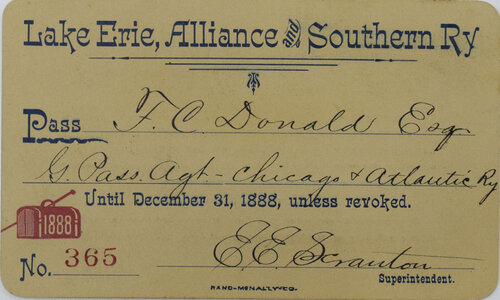 Lake Erie, Alliance and Southern Ry
Pass F. C. Donald Esq
G. Pass. Agt - Chicago & Atlantic Ry
Until December 31, 1888, unless revoked.
1888
No. 365
E. E. Scranton
Superintendent.
RAND-McNALLY & CO.